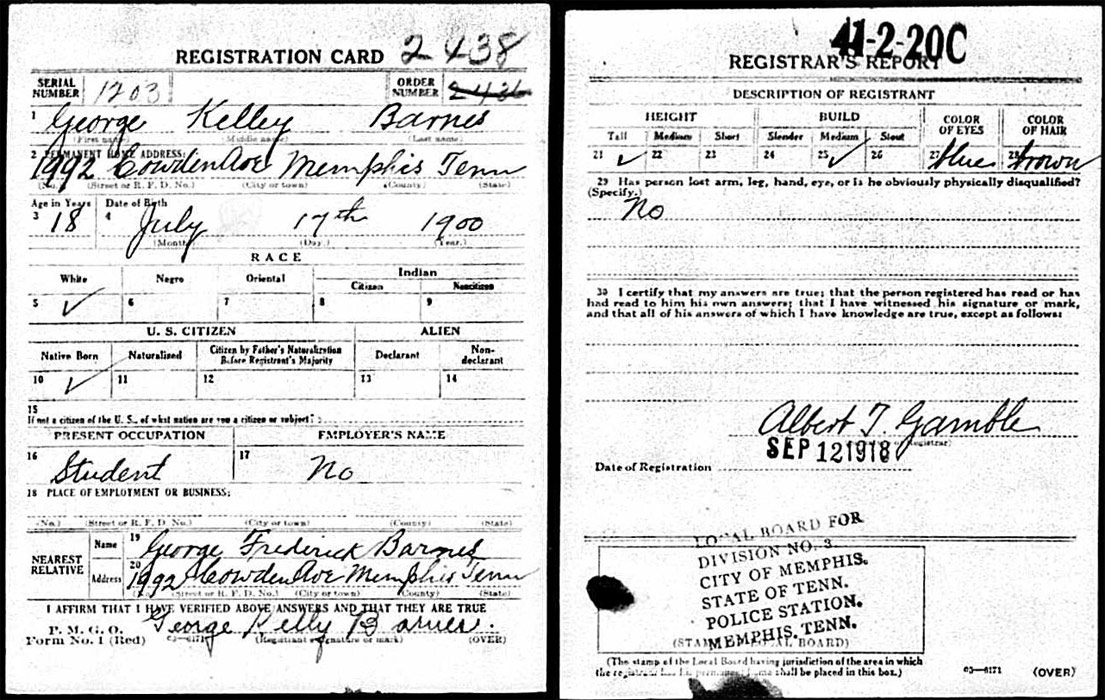 REGISTRATION CARD 2438
SERIAL NUMBER 1203 ORDER NUMBER 2436
1 George Kelley Barnes
(First name) (Middle name) (Last name)
2 PERMANENT HOME ADDRESS:
1992 Cowden Ave Memphis Tenn
(No.) (Street or R. F. D. No.) (City or town) (County) (State)
Age in Years Date of Birth
3 18 4 July 17th 1900
(Month) (Day.) (Year.)
RACE
White Negro Oriental Indian
Citizen Noncitizen
5 ✓ 6 7 8 9
U. S. CITIZEN ALIEN
Native Born Naturalized Citizen by Father's Naturalization Before Registrant's Majority Declarant Non-declarant
10 ✓ 11 12 13 14
15
If not a citizen of the U. S., of what nation are you a citizen or subject?
PRESENT OCCUPATION EMPLOYER'S NAME
16 Student 17 No
18 PLACE OF EMPLOYMENT OR BUSINESS:
(No.) (Street or R. F. D. No.) (City or town) (County) (State)
NEAREST RELATIVE
Name 19 George Frederick Barnes
Address 20 1992 Cowden Ave Memphis Tenn
(No.) (Street or R. F. D. No.) (City or town) (County) (State)
I AFFIRM THAT I HAVE VERIFIED ABOVE ANSWERS AND THAT THEY ARE TRUE
George Kelly Barnes.
P. M. G. O.
Form No. 1 (Red) 03—6171 (Registrant signature or mark) (OVER)
41-2-20C
REGISTRAR'S REPORT
DESCRIPTION OF REGISTRANT
HEIGHT BUILD COLOR OF EYES COLOR OF HAIR
Tall Medium Short Slender Medium Stout
21 ✓ 22 23 24 25 ✓ 26 27 blue 28 brown
29 Has person lost arm, leg, hand, eye, or is he obviously physically disqualified?
(Specify.)
No
30 I certify that my answers are true; that the person registered has read or has
had read to him his own answers; that I have witnessed his signature or mark,
and that all of his answers of which I have knowledge are true, except as follows:
Albert T. Gamble
(Registrar)
Date of Registration SEP 12 1918
LOCAL BOARD FOR
DIVISION NO. 3.
CITY OF MEMPHIS.
STATE OF TENN.
POLICE STATION.
MEMPHIS, TENN.
(STAMP OF LOCAL BOARD)
(The stamp of the Local Board having jurisdiction of the area in which
the registrant has his permanent home shall be placed in this box.)
03—6171 (OVER)